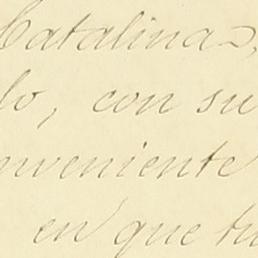 Catalina,
lo, con su
nveniente
en que tu